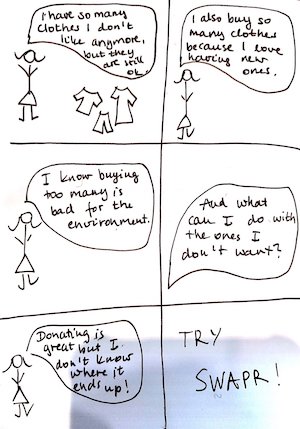 I have so many
clothes I don't
like anymore,
but they
are still
ok.
I also buy so
many clothes
because I love
having new
ones.
I know buying
too many is
bad for the
environment.
And what
can I do with
the ones I
don't want?
Donating is
great but I
don't know
where it
ends up!
TRY
SWAPR!